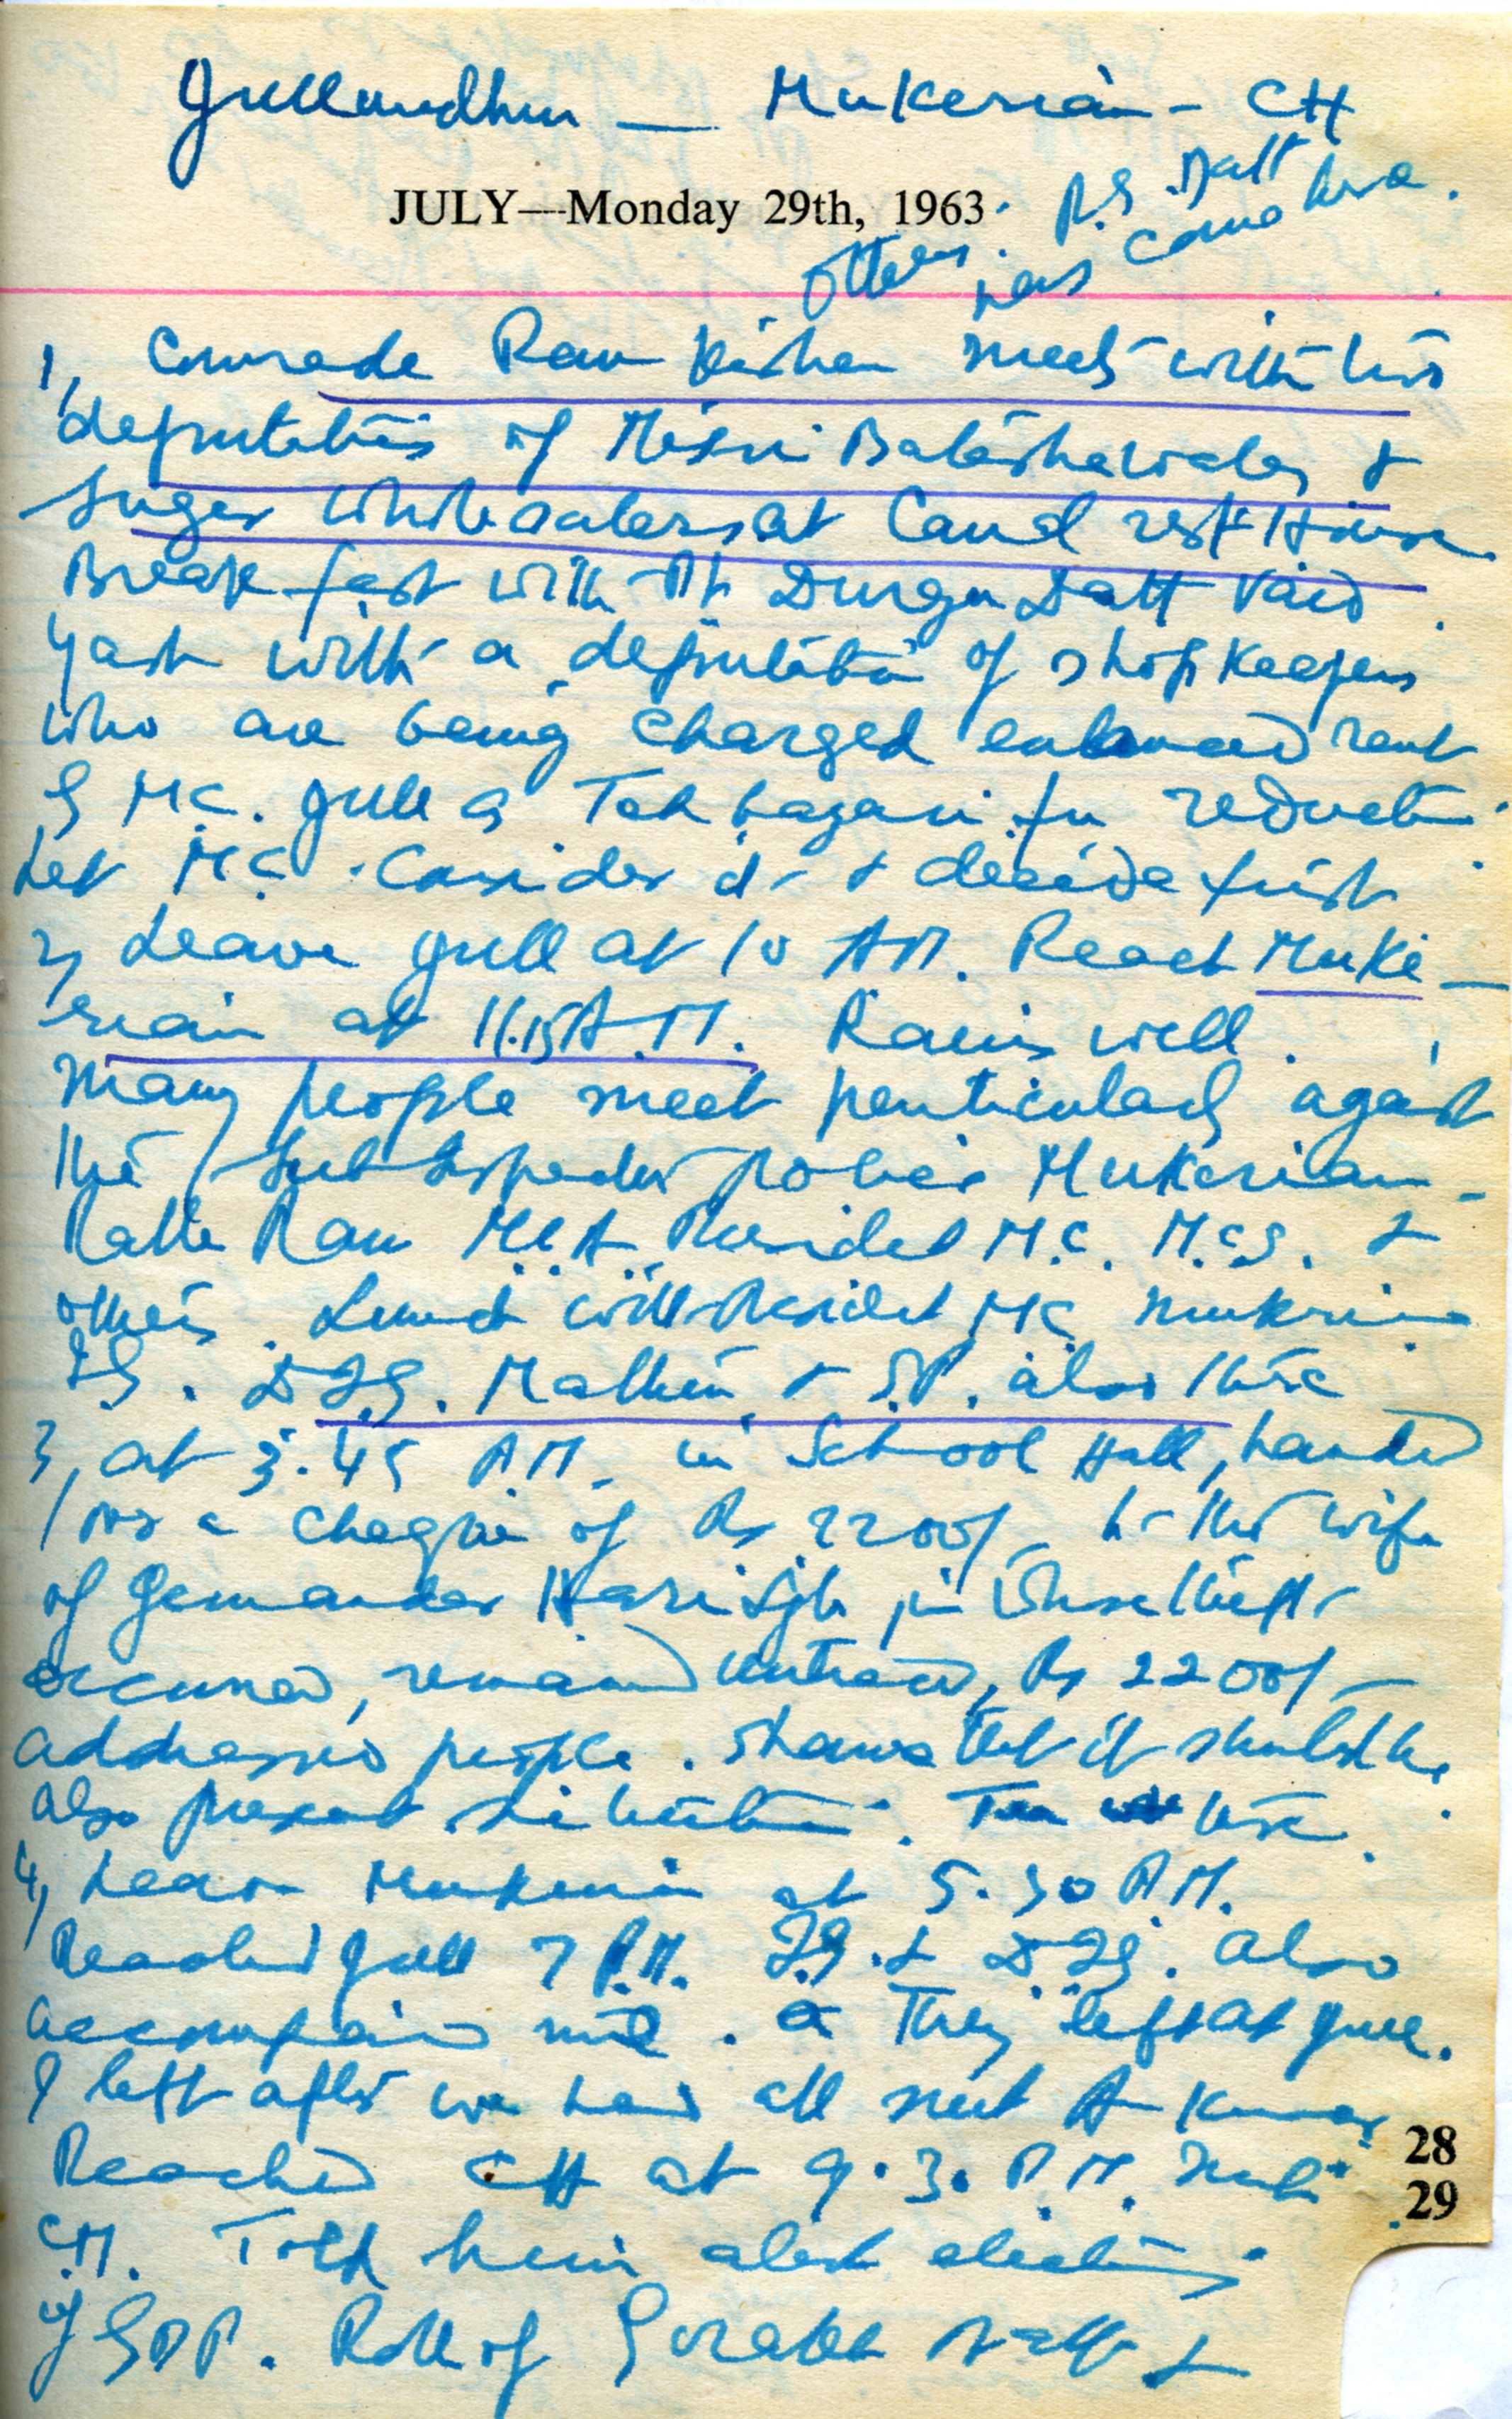 Jullundhur — Mukerian - CH
JULY—Monday 29th, 1963.
others. P.S. Datt
has come here.
1, Comrade Ram Kishen meets with two
deputations of Misri Batashawalas &
Sugar wholesalers at Canal rest House
Breakfast with Pt Durga Datt Vaid.
Yash with a deputation of shopkeepers
who are being charged enhanced rent
by MC. Jull as Teh bazari for reduction.
Let MC. Consider it & decide first
2, Leave Jull at 10 AM. Reach Muke-
rian at 11.15 A.M. Rains well.
Many people meet particularly against
the Sub Inspector police Mukerian -
Ralla Ram MLA President M.C. M.Cs. &
others. Lunch with President MC Mukerian
IG. DIG. & S.P. also there
3, at 3.45 P.M. in School Hall, handed
over a cheque of Rs 2200/- to the wife
of Jemandar Hari Sgh in whose theft
occurred, remained untraced, Rs 2200/-
addressed people. that it should be
also present situation. Tea here.
4, Leave Mukerian at 5.30 P.M.
Reached Jull 7 P.M. I.G. & DIG. also
accompanied me. They left at Jull.
I left after we had all met
Reached CH at 9.30 P.M. Met
C.M. Told him about election
of GPP. Roll of &
28
29